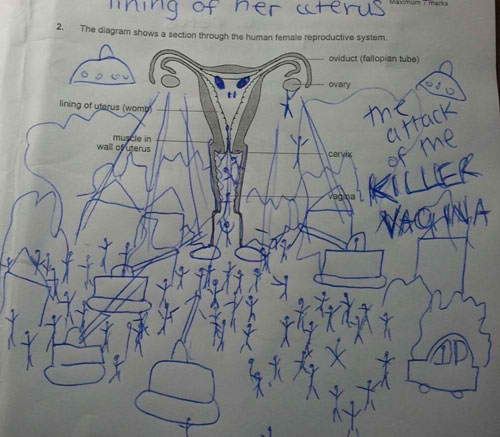 lining of her uterus
Maximum 7 marks
2. The diagram shows a section through the human female reproductive system.
oviduct (fallopian tube)
ovary
lining of uterus (womb)
muscle in
wall of uterus
cervix
vagina
the
attack
of the
KILLER
VAGINA